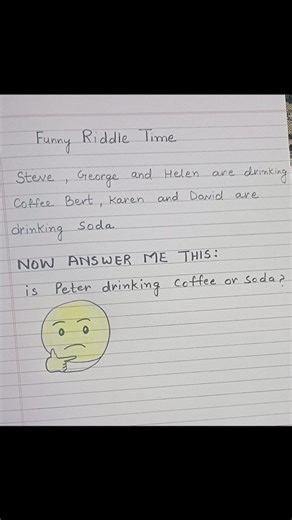 Funny Riddle Time
Steve, George and Helen are drinking
Coffee Bert, Karen and David are
drinking Soda
NOW ANSWER ME THIS:
is Peter drinking Coffee or Soda?